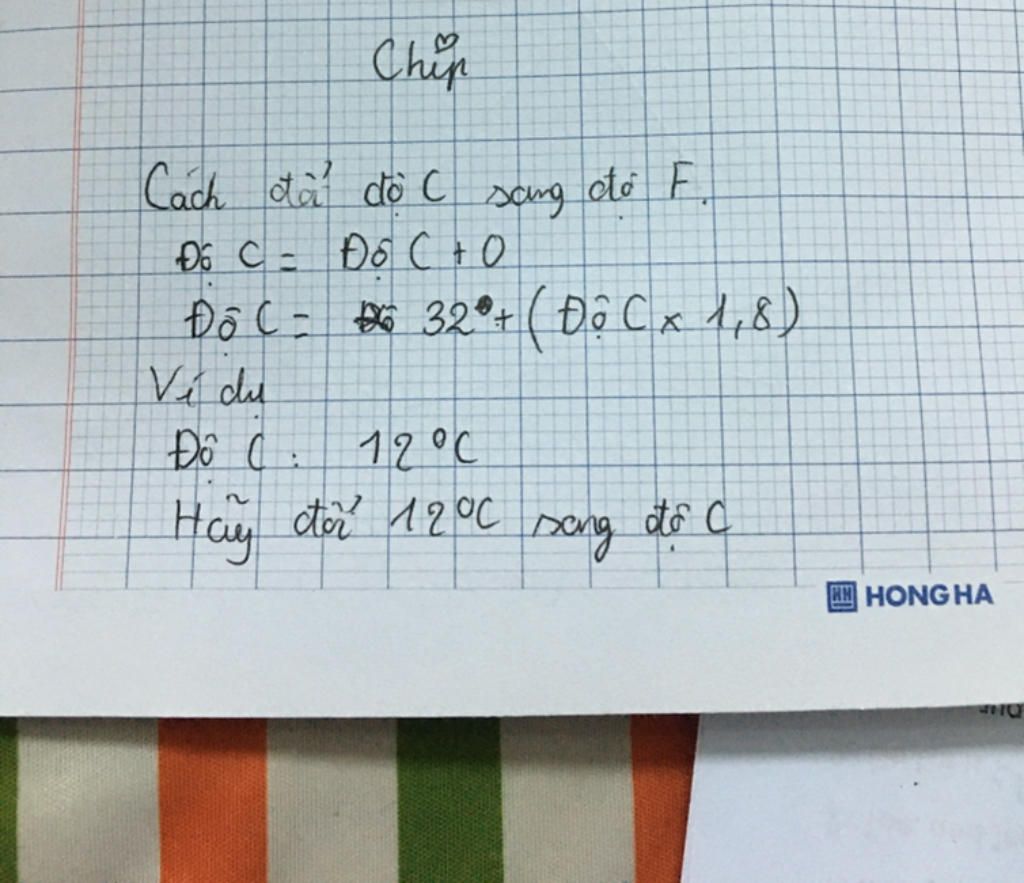 Chip
Cách đổi độ C sang độ F.
Độ C = Độ C + 0
Độ C = 32° + (Độ C x 1,8)
Ví dụ
Độ C : 12°C
Hãy đổi 12°C sang độ C
HONG HA